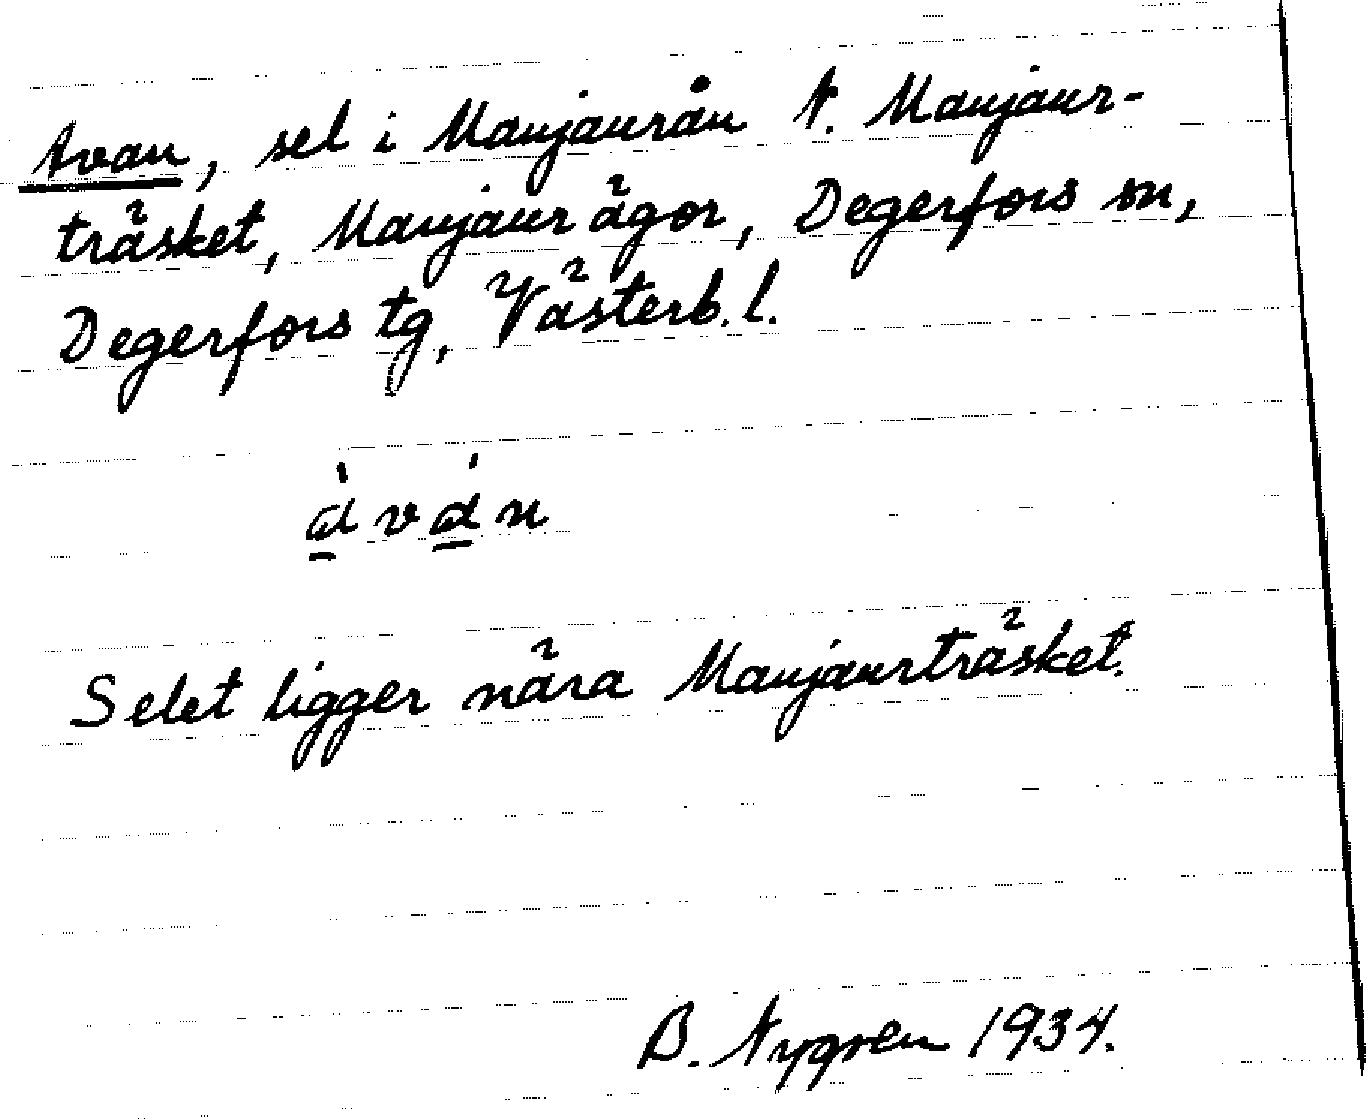 Avan, sel i Manjaurån N. Manjaur-
träsket, Manjaur ägor, Degerfors sn,
Degerfors tg, Västerb. l.
àván
Selet ligger nära Manjaurträsket.
B. Nygren 1934.